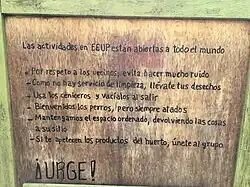 Las actividades en EEUP están abiertas a todo el mundo
- Por respeto a los vecinos, evita hacer mucho ruido
- Como no hay servicio de limpieza, llévate tus desechos
- Usa los ceniceros y vacíalos al salir
- Bienvenidos los perros, pero siempre atados
- Mantengamos el espacio ordenado, devolviendo las cosas
a su sitio
- Si te apetecen los productos del huerto, únete al grupo
¡URGE!